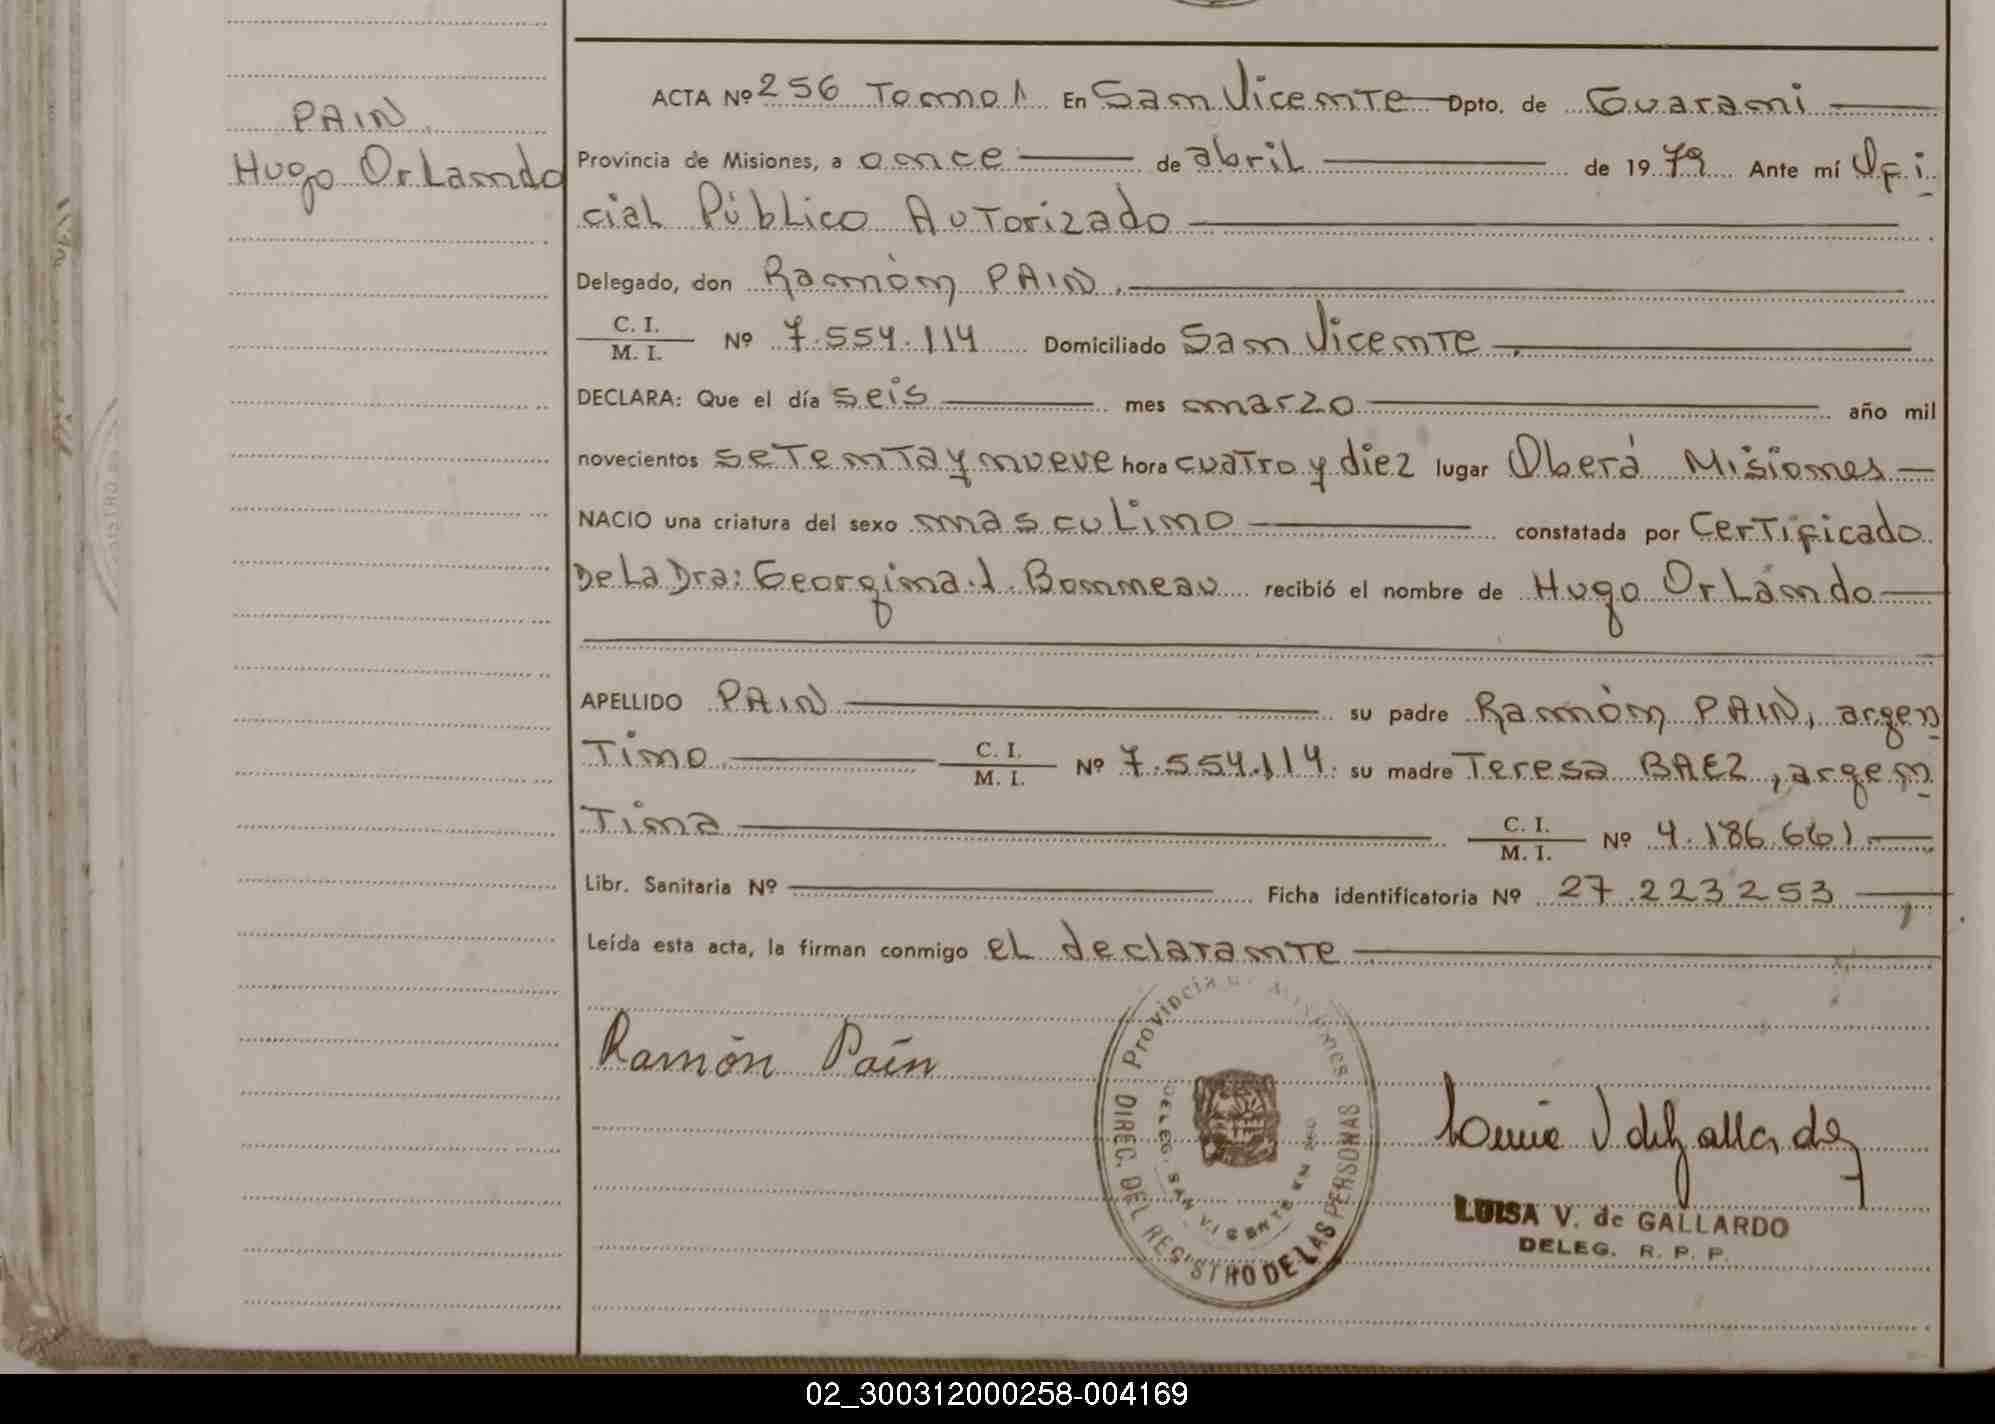 PAIN
Hugo Orlando
ACTA Nº 256 Tomo 1 En San Vicente Dpto. de Guarani
Provincia de Misiones, a once de abril de 1979 Ante mí Ofi
cial Público Autorizado
Delegado, don Ramón PAIN.
C. I.
M. I. Nº 7.554.114 Domiciliado San Vicente.
DECLARA: Que el día seis mes marzo año mil
novecientos setenta y nueve hora cuatro y diez lugar Oberá Misiones
NACIO una criatura del sexo masculino constatada por Certificado
De La Dra: Georgina I. Bonneau recibió el nombre de Hugo Orlando
APELLIDO PAIN su padre Ramón PAIN, argen
tino C. I. M. I. Nº 7.554.114. su madre Teresa BAEZ, argen
tina C. I. M. I. Nº 4.186.661.
Libr. Sanitaria Nº Ficha identificatoria Nº 27.223253
Leída esta acta, la firman conmigo el declarante
Ramón Paín
Provincia de Misiones
DIREC. DEL REGISTRO DE LAS PERSONAS
DELEG. SAN VICENTE
Luisa V de Gallardo
LUISA V. de GALLARDO
DELEG. R. P. P.
02_300312000258-004169